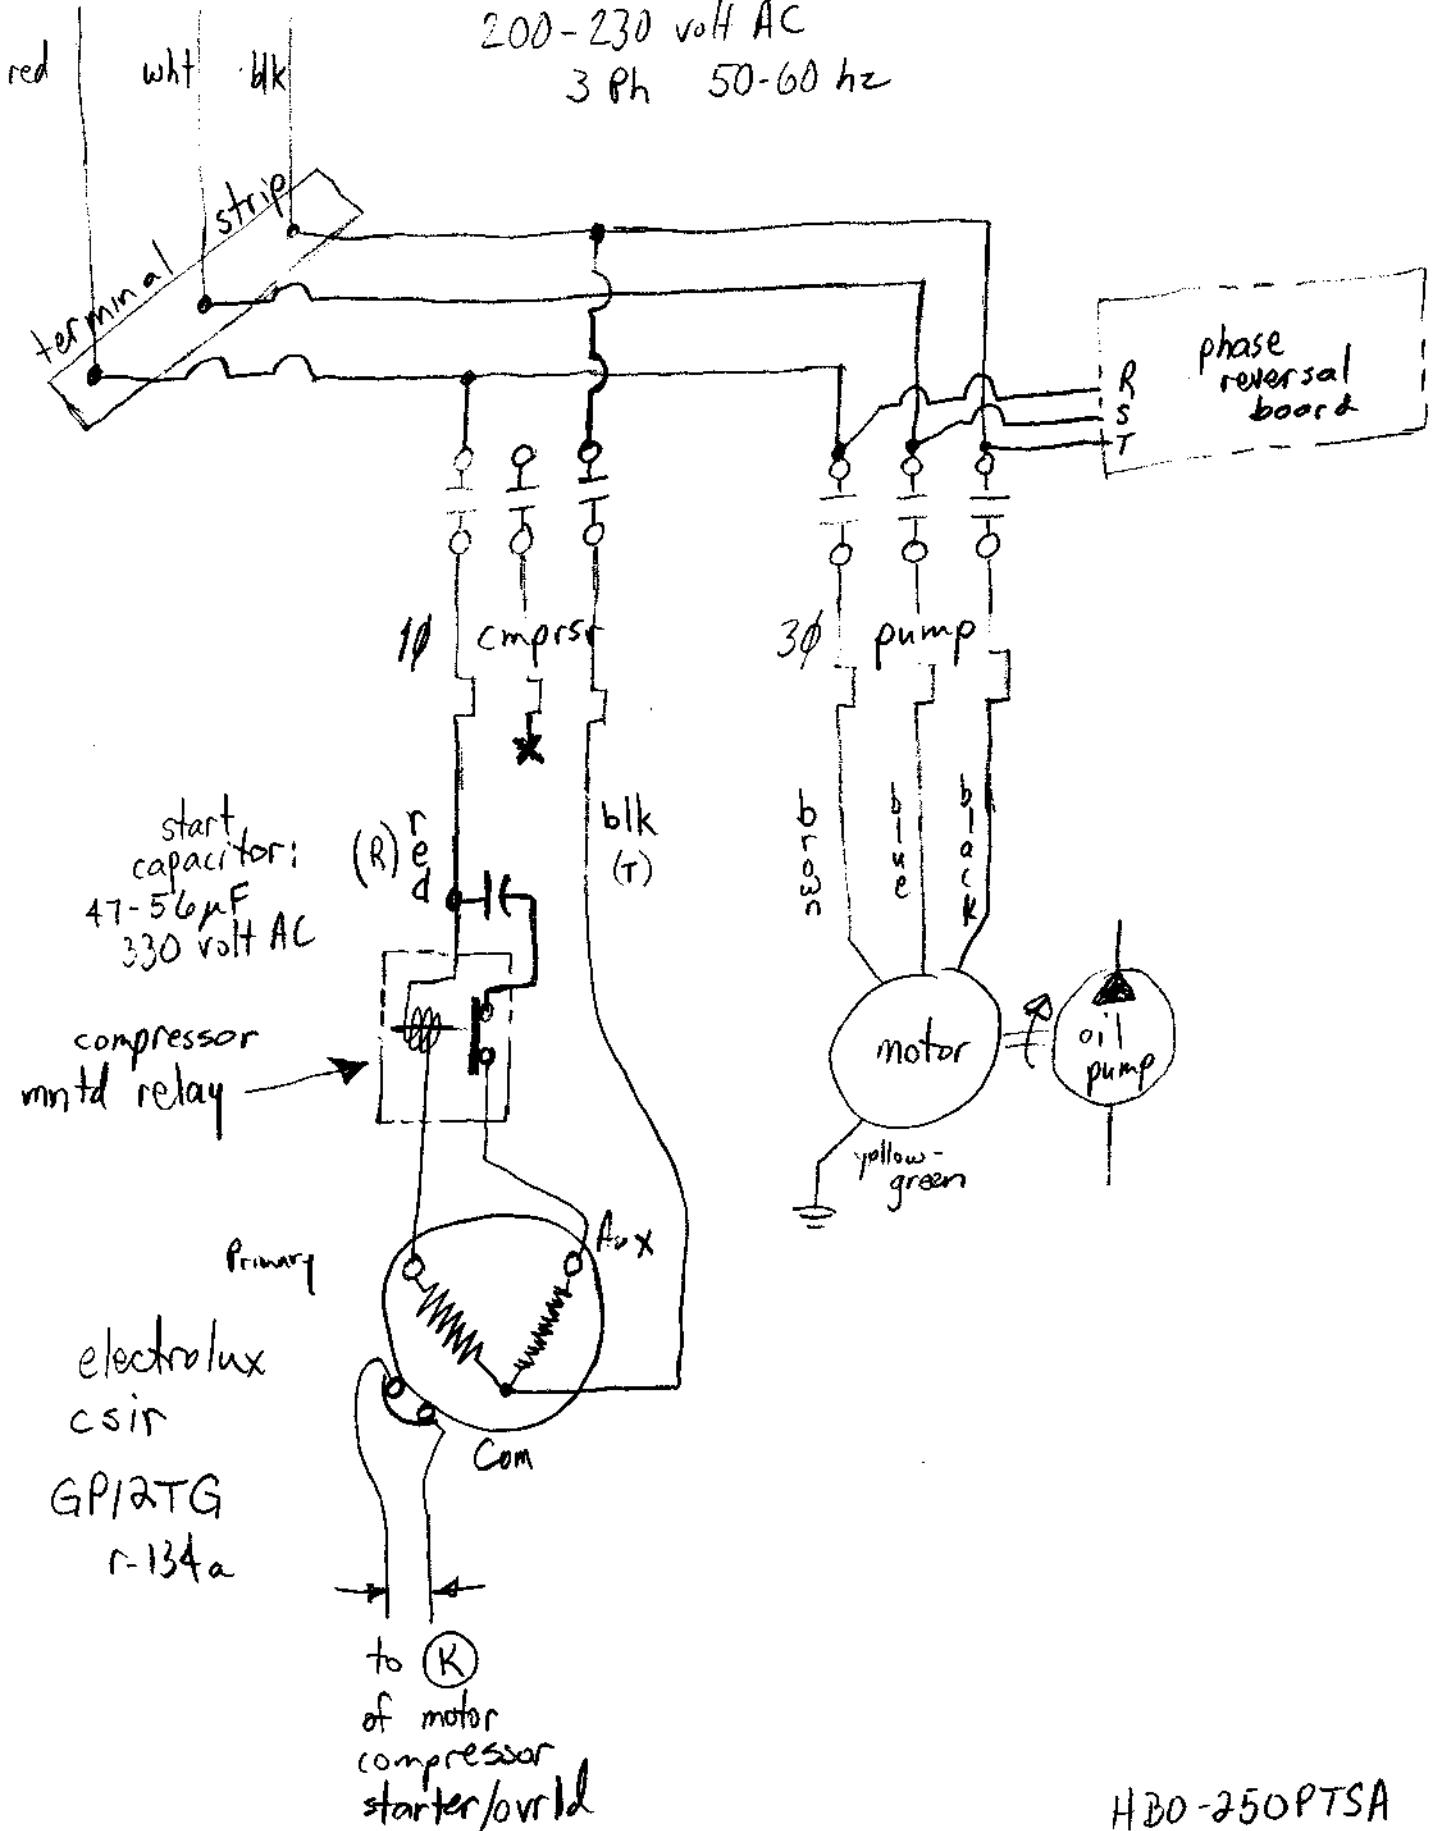 200-230 volt AC
3 Ph 50-60 hz
red
wht
blk
terminal strip
phase
reversal
board
R
S
T
1ø cmprsr
3ø pump
start
capacitor:
47-56µF
330 volt AC
(R) red
blk
(T)
brown
blue
black
compressor
mntd relay
motor
oil
pump
yellow-
green
Primary
Aux
Com
electrolux
csir
GP12TG
r-134a
to K
of motor
compressor
starter/ovrld
HBO-250PTSA